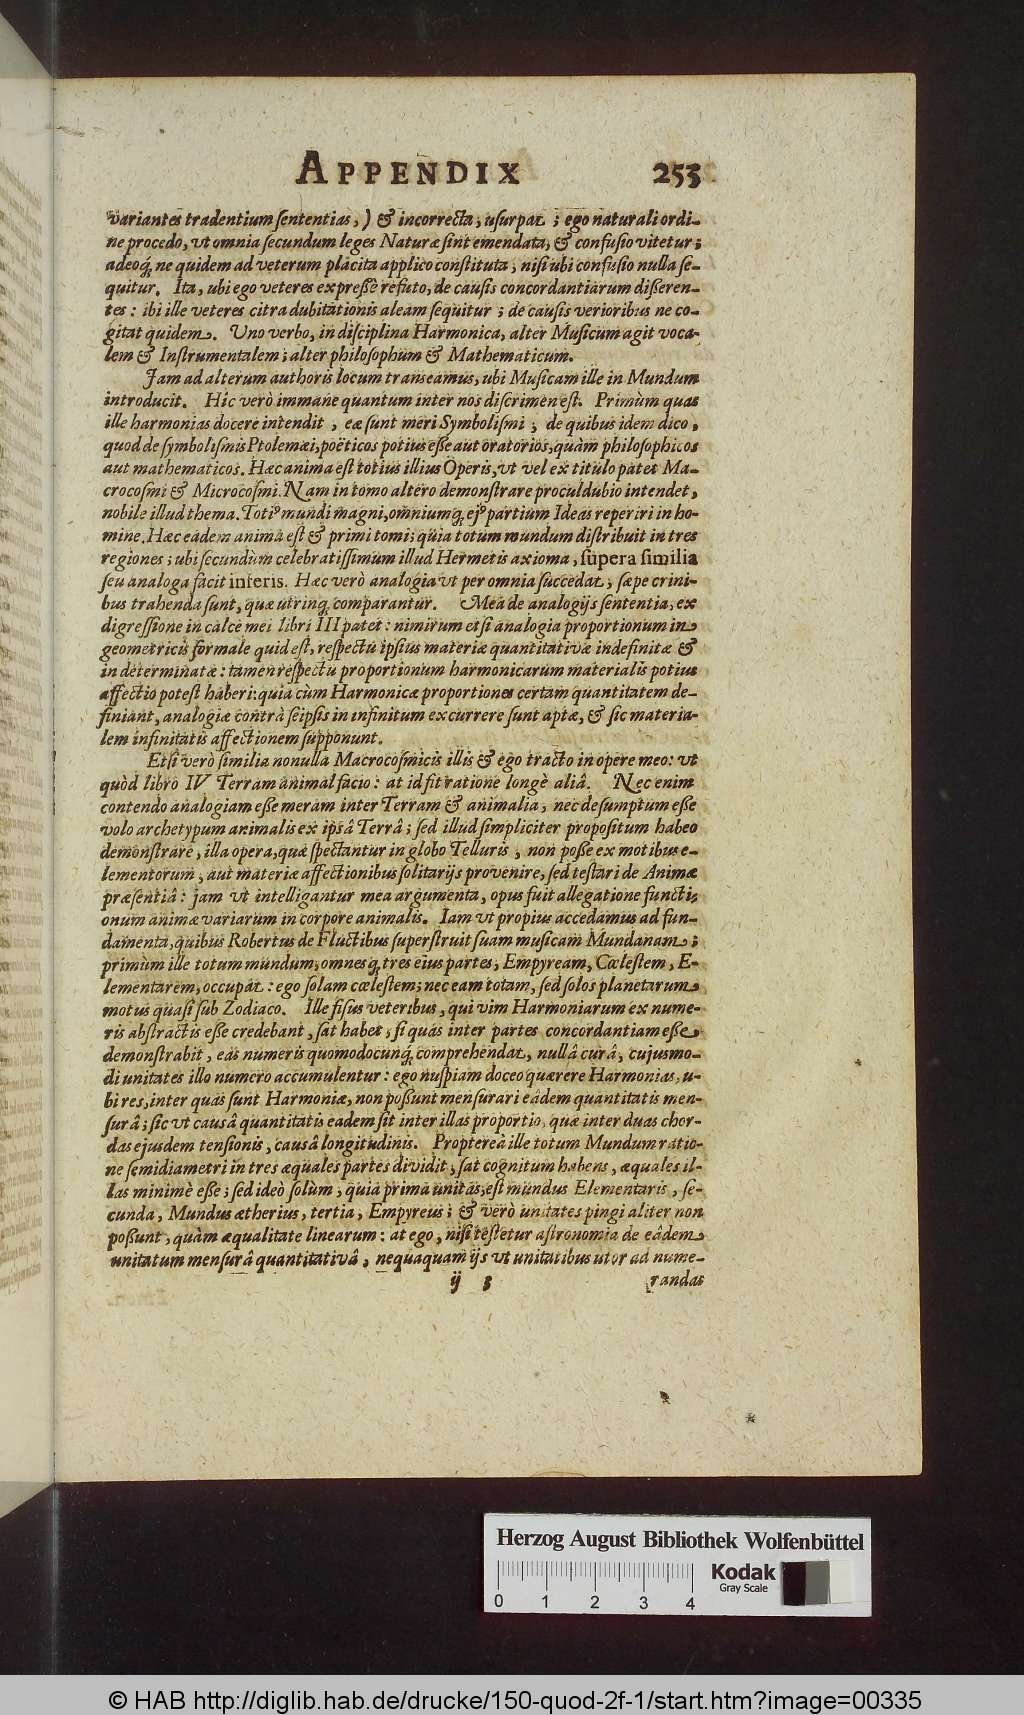 APPENDIX 253
variantes tradentium ſententias, ) & incorrecta, uſurpat ; ego naturali ordi-
ne procedo, ut omnia ſecundum leges Naturæ ſint emendata, & confuſio vitetur ;
adeoq́; ne quidem ad veterum placita applico conſtituta, niſi ubi confuſio nulla ſe-
quitur. Ita, ubi ego veteres expreſſè refuto, de cauſis concordantiarum diſſeren-
tes : ibi ille veteres citra dubitationis aleam ſequitur ; de cauſis verioribus ne co-
gitat quidem. Uno verbo, in diſciplina Harmonica, alter Muſicum agit voca-
lem & Inſtrumentalem ; alter philoſophum & Mathematicum.
Jam ad alterum authoris locum tranſeamus, ubi Muſicam ille in Mundum
introducit. Hîc verò immane quantum inter nos diſcrimen eſt. Primùm quas
ille harmonias docere intendit , eæ ſunt meri Symboliſmi ; de quibus idem dico,
quod de ſymboliſmis Ptolemæi, poëticos potius eſſe aut oratorios, quàm philoſophicos
aut mathematicos. Hæc anima eſt totius illius Operis, vt vel ex titulo patet Ma-
crocoſmi & Microcoſmi. Nam in tomo altero demonſtrare proculdubio intendet,
nobile illud thema. Totiꝰ mundi magni, omniumq́; ejꝰ partium Ideas reperiri in ho-
mine. Hæc eadem anima eſt & primi tomi; quia totum mundum diſtribuit in tres
regiones ; ubi ſecundùm celebratiſſimum illud Hermetis axioma, ſupera ſimilia
ſeu analoga facit inferis. Hæc verò analogia ut per omnia ſuccedat, ſæpe crini-
bus trahenda ſunt, quæ utrinq́; comparantur. Mea de analogijs ſententia, ex
digreſſione in calce mei libri III patet : nimirum etſi analogia proportionum in
geometricis formale quid eſt, reſpectu ipſius materiæ quantitativæ indefinitæ &
indeterminatæ : tamen reſpectu proportionum harmonicarum materialis potius
affectio poteſt haberi: quia cùm Harmonicæ proportiones certam quantitatem de-
finiant, analogiæ contrà ſeipſis in infinitum excurrere ſunt aptæ, & ſic materia-
lem infinitatis affectionem ſupponunt.
Etſi verò ſimilia nonulla Macrocoſmicis illis & ego tracto in opere meo: ut
quòd libro IV Terram animal facio : at id fit ratione longè aliâ. Nec enim
contendo analogiam eſſe meram inter Terram & animalia, nec deſumptum eſſe
volo archetypum animalis ex ipsâ Terrâ ; ſed illud ſimpliciter propoſitum habeo
demonſtrare, illa opera, quæ ſpectantur in globo Telluris , non poſſe ex motibus e-
lementorum, aut materiæ affectionibus ſolitarijs provenire, ſed teſtari de Animæ
præſentiâ : jam ut intelligantur mea argumenta, opus fuit allegatione functi-
onum animæ variarum in corpore animalis. Iam ut propius accedamus ad fun-
damenta, quibus Robertus de Fluctibus ſuperſtruit ſuam muſicam Mundanam ;
primùm ille totum mundum, omnesq́; tres eius partes, Empyream, Cœleſtem, E-
lementarem, occupat : ego ſolam cœleſtem; nec eam totam, ſed ſolos planetarum
motus quaſi ſub Zodiaco. Ille fiſus veteribus, qui vim Harmoniarum ex nume-
ris abſtractis eſſe credebant , ſat habet, ſi quas inter partes concordantiam eſſe
demonſtrabit , eas numeris quomodocunq́; comprehendat, nullâ curâ, cujuſmo-
di unitates illo numero accumulentur : ego nuſpiam doceo quærere Harmonias, u-
bi res, inter quas ſunt Harmoniæ, non poſſunt menſurari eâdem quantitatis men-
ſurâ ; ſic ut causâ quantitatis eadem ſit inter illas proportio, quæ inter duas chor-
das ejuſdem tenſionis, causâ longitudinis. Propterea ille totum Mundum ratio-
ne ſemidiametri in tres æquales partes dividit, ſat cognitum habens, æquales il-
las minimè eſſe ; ſed ideò ſolùm, quia prima unitas, eſt mundus Elementaris, ſe-
cunda, Mundus ætherius, tertia, Empyreus ; & verò unitates pingi aliter non
poſſunt, quàm æqualitate linearum : at ego, niſi teſtetur aſtronomia de eâdem
unitatum menſurâ quantitativâ, nequaquam ijs ut unitatibus utor ad nume-
ij 3 randas
Herzog August Bibliothek Wolfenbüttel
Kodak
Gray Scale
0 1 2 3 4
© HAB http://diglib.hab.de/drucke/150-quod-2f-1/start.htm?image=00335